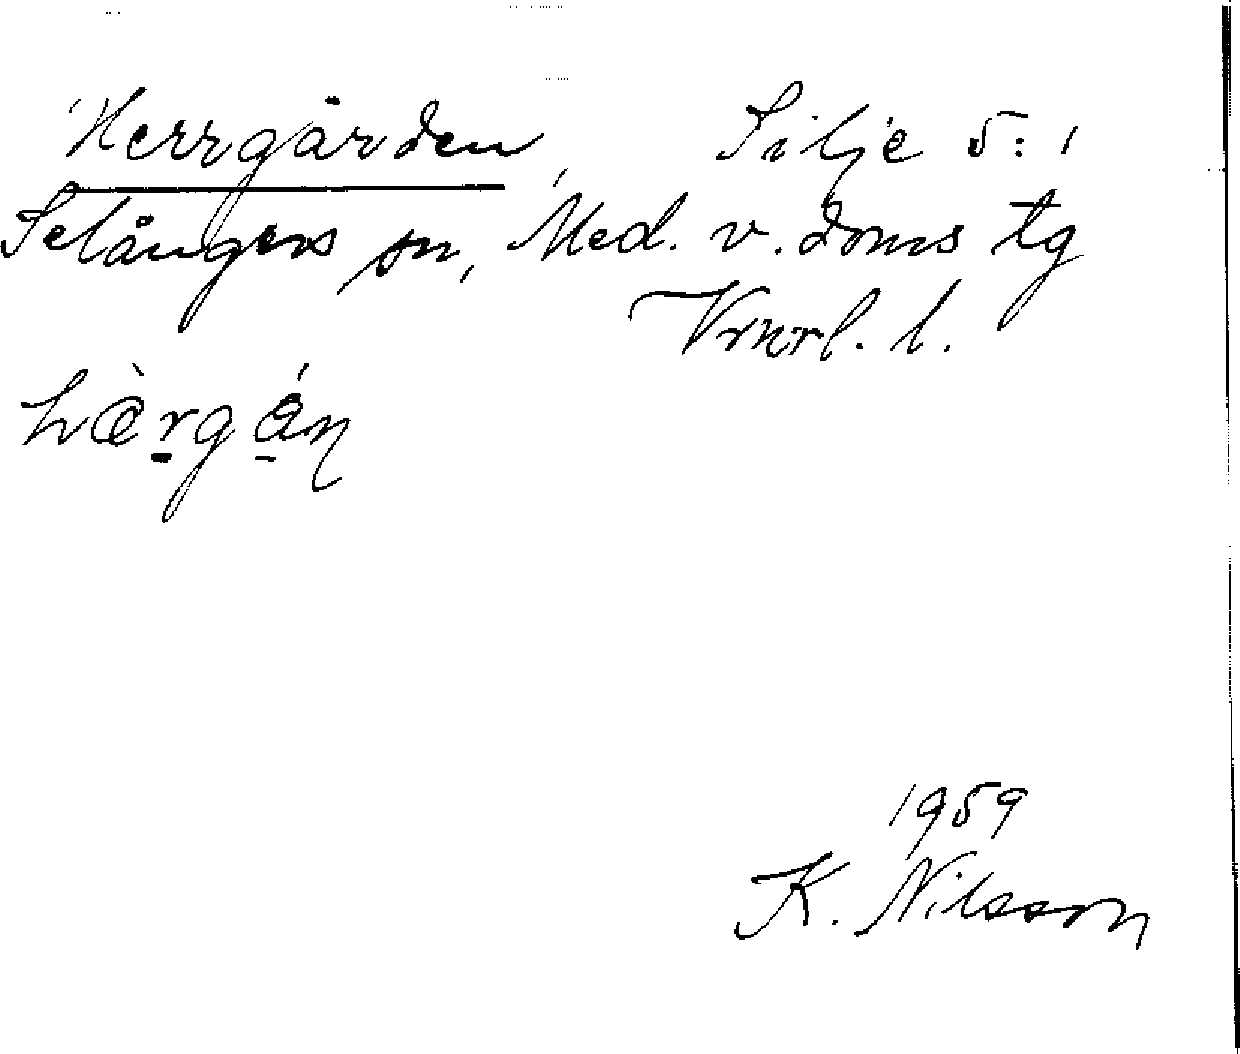 Herrgården, Silje 5:1
Selångers sn, Med. v. doms tg
Vrnrl. l.
hæ̀rgán
1959
K. Nilsson